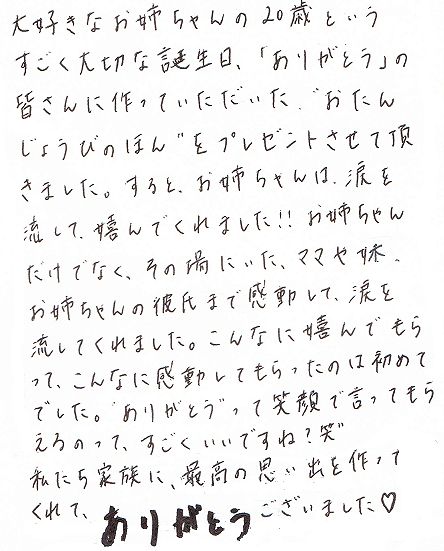 大好きなお姉ちゃんの20歳という
すごく大切な誕生日、「ありがとう」の
皆さんに作っていただいた、"おたん
じょうびのほん"をプレゼントさせて頂
きました。すると、お姉ちゃんは、涙を
流して、嬉んでくれました!!お姉ちゃん
だけでなく、その場にいた、ママや妹、
お姉ちゃんの彼氏まで感動して、涙を
流してくれました。こんなに嬉んでもら
って、こんなに感動してもらったのは初めて
でした。"ありがとう"って笑顔で言ってもら
えるのって、すごくいいですね?笑"
私たち家族に、最高の思い出を作って
くれて、ありがとうございました♡